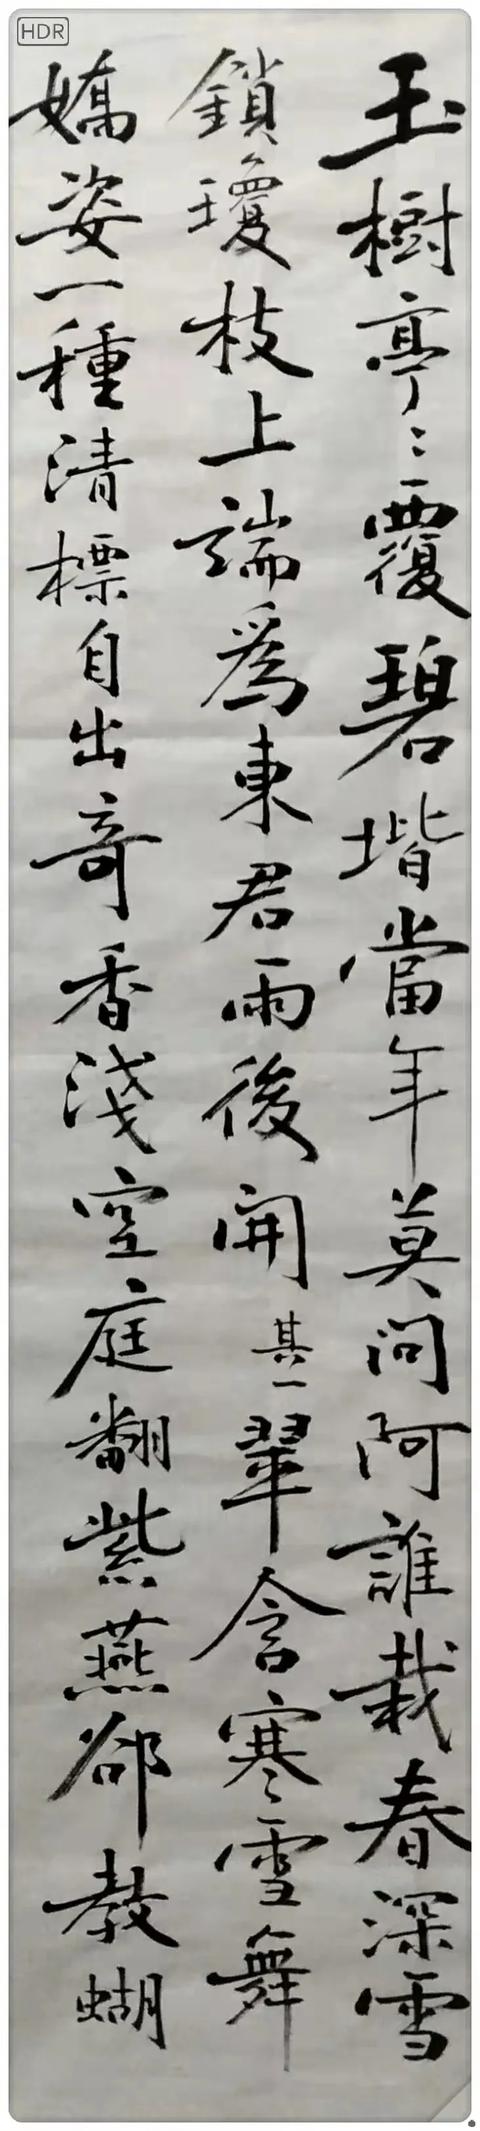 玉樹亭〻覆碧堦當年莫问阿誰栽春深雪
鎖瓊枝上端爲東君雨後開其一翠含寒雪舞
嬌姿一種清標自出奇香淺空庭翻紫燕郤教蝴
HDR